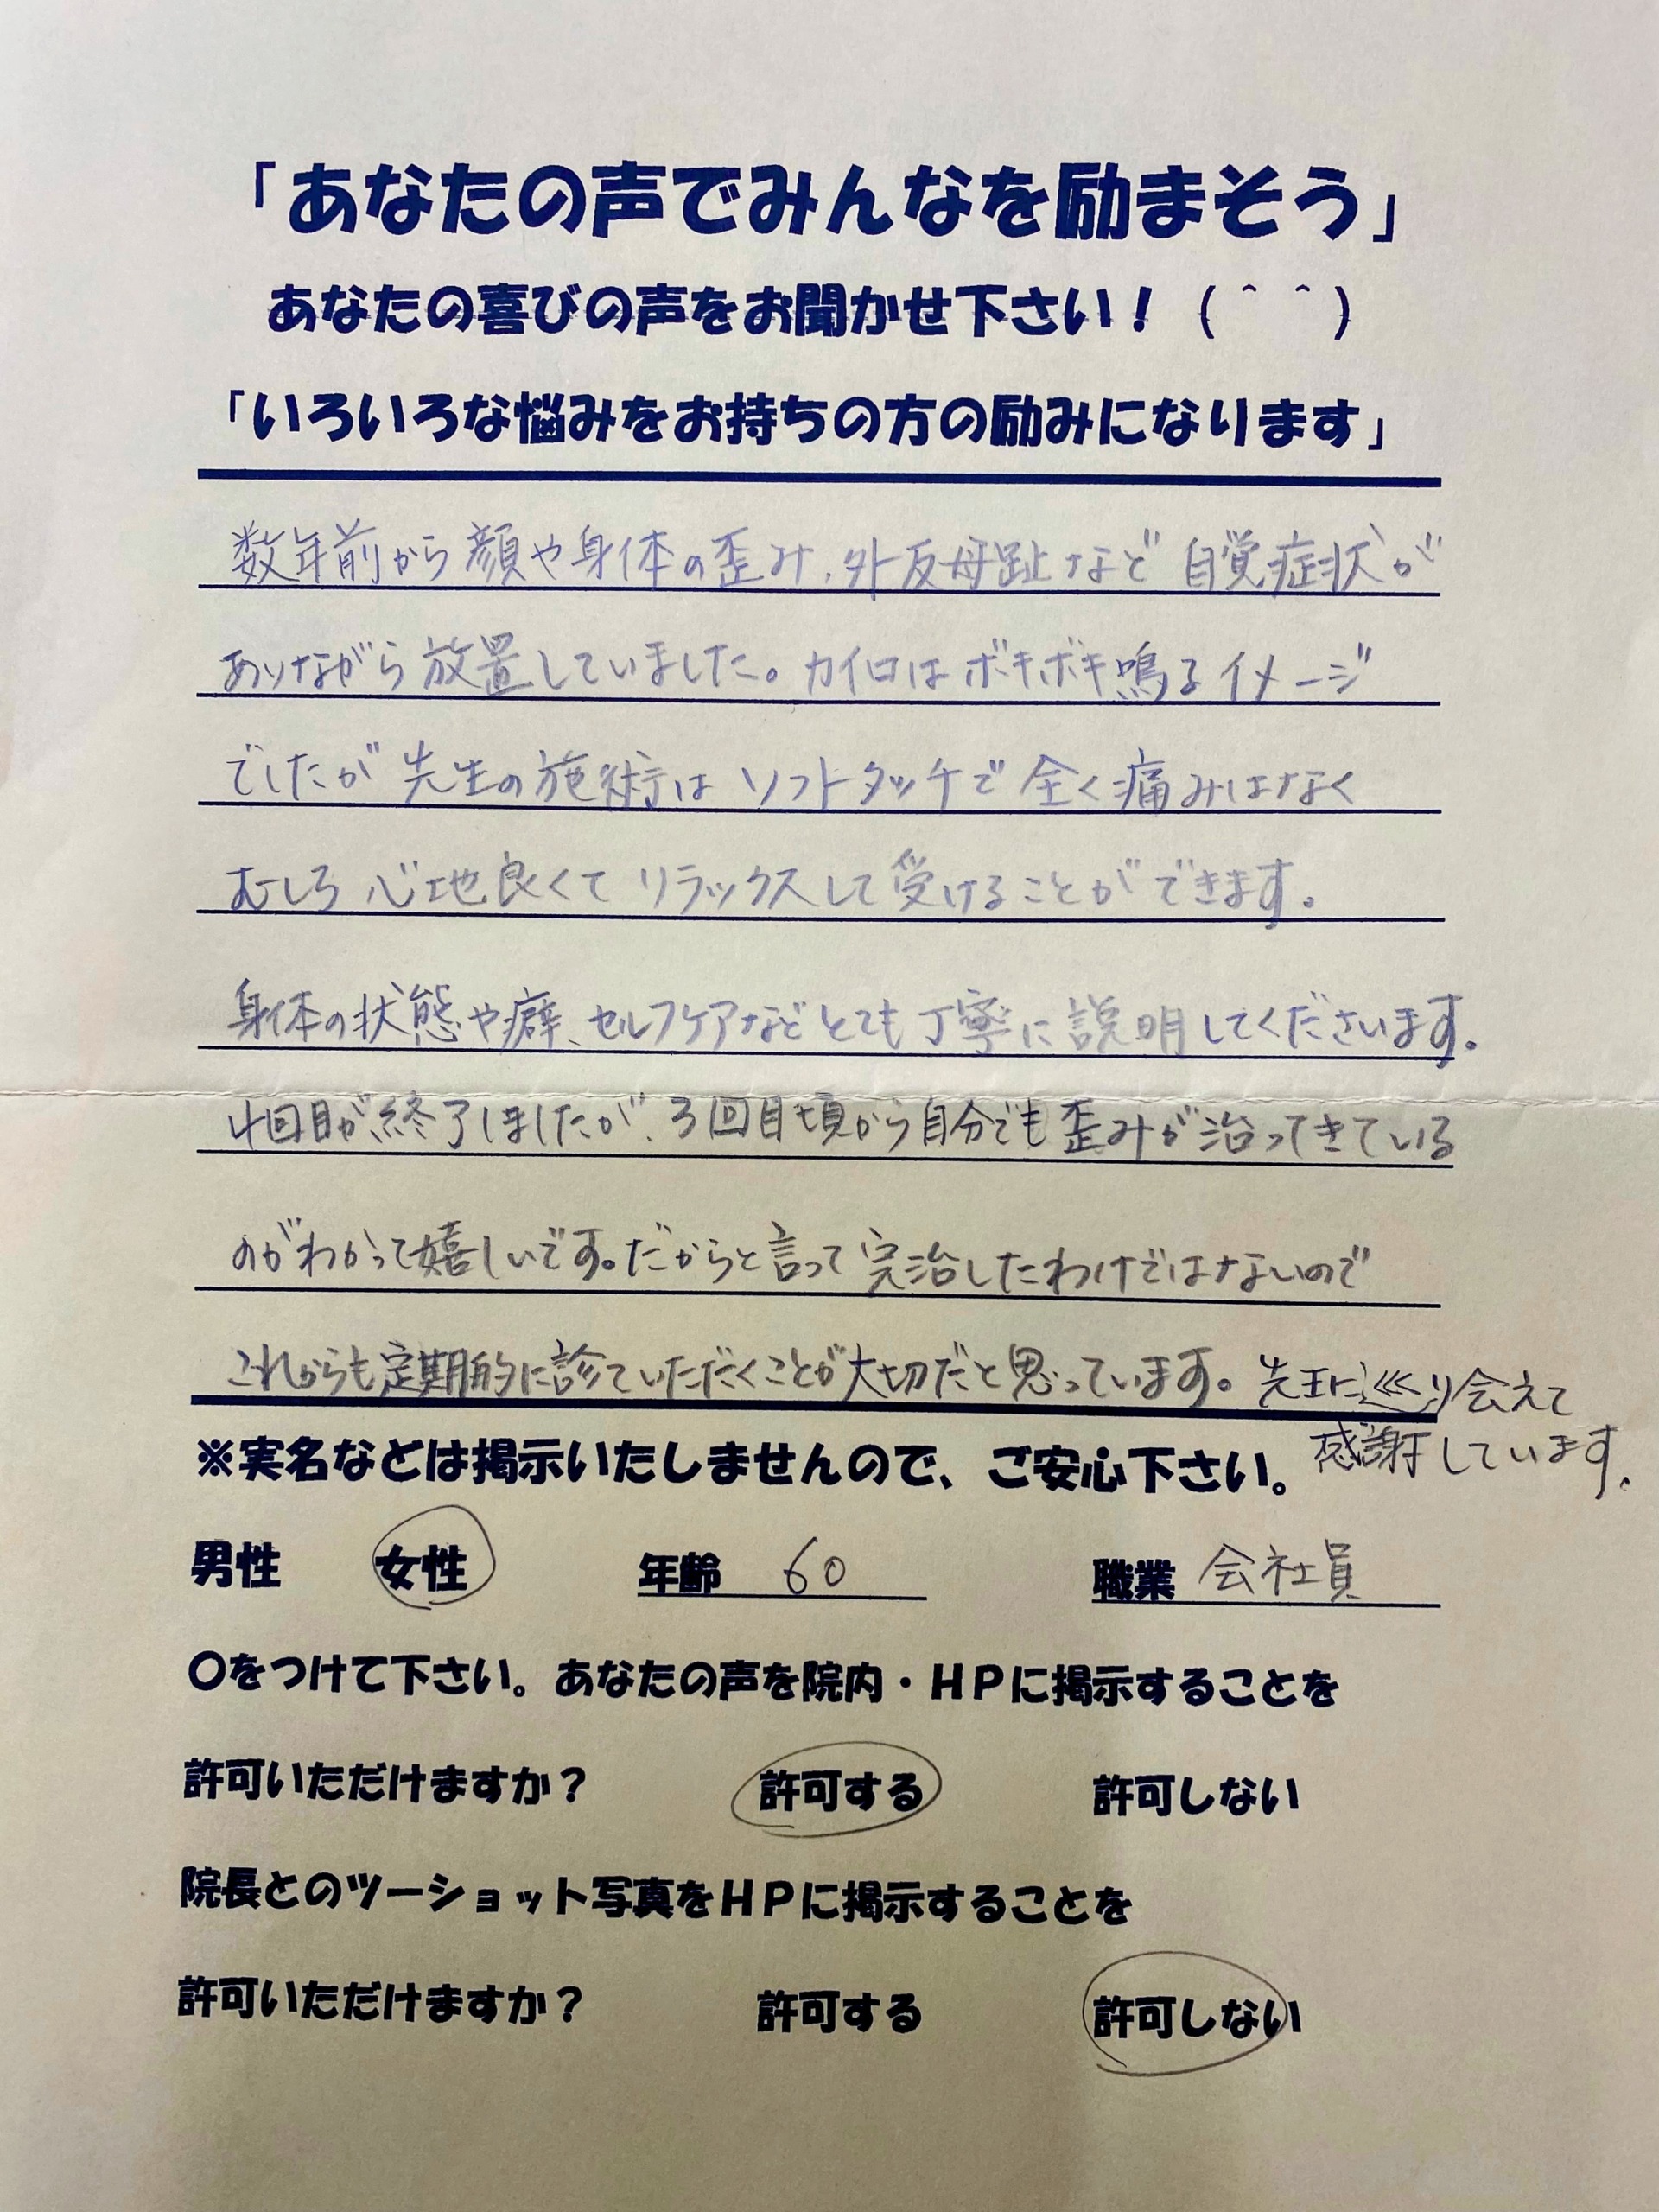 「あなたの声でみんなを励まそう」
あなたの喜びの声をお聞かせ下さい！（＾＾）
「いろいろな悩みをお持ちの方の励みになります」
数年前から顔や身体の歪み、外反母趾など自覚症状が
ありながら放置していました。カイロはボキボキ鳴るイメージ
でしたが先生の施術はソフトタッチで全く痛みはなく
むしろ心地良くてリラックスして受けることができます。
身体の状態や癖、セルフケアなどとても丁寧に説明してくださいます。
4回目が終了しましたが、3回目頃から自分でも歪みが治ってきている
のがわかって嬉しいです。だからと言って完治したわけではないので
これからも定期的に診ていただくことが大切だと思っています。先生に巡り会えて
感謝しています。
※実名などは掲示いたしませんので、ご安心下さい。
男性 女性 年齢 60 職業 会社員
〇をつけて下さい。あなたの声を院内・ＨＰに掲示することを
許可いただけますか？ 許可する 許可しない
院長とのツーショット写真をＨＰに掲示することを
許可いただけますか？ 許可する 許可しない